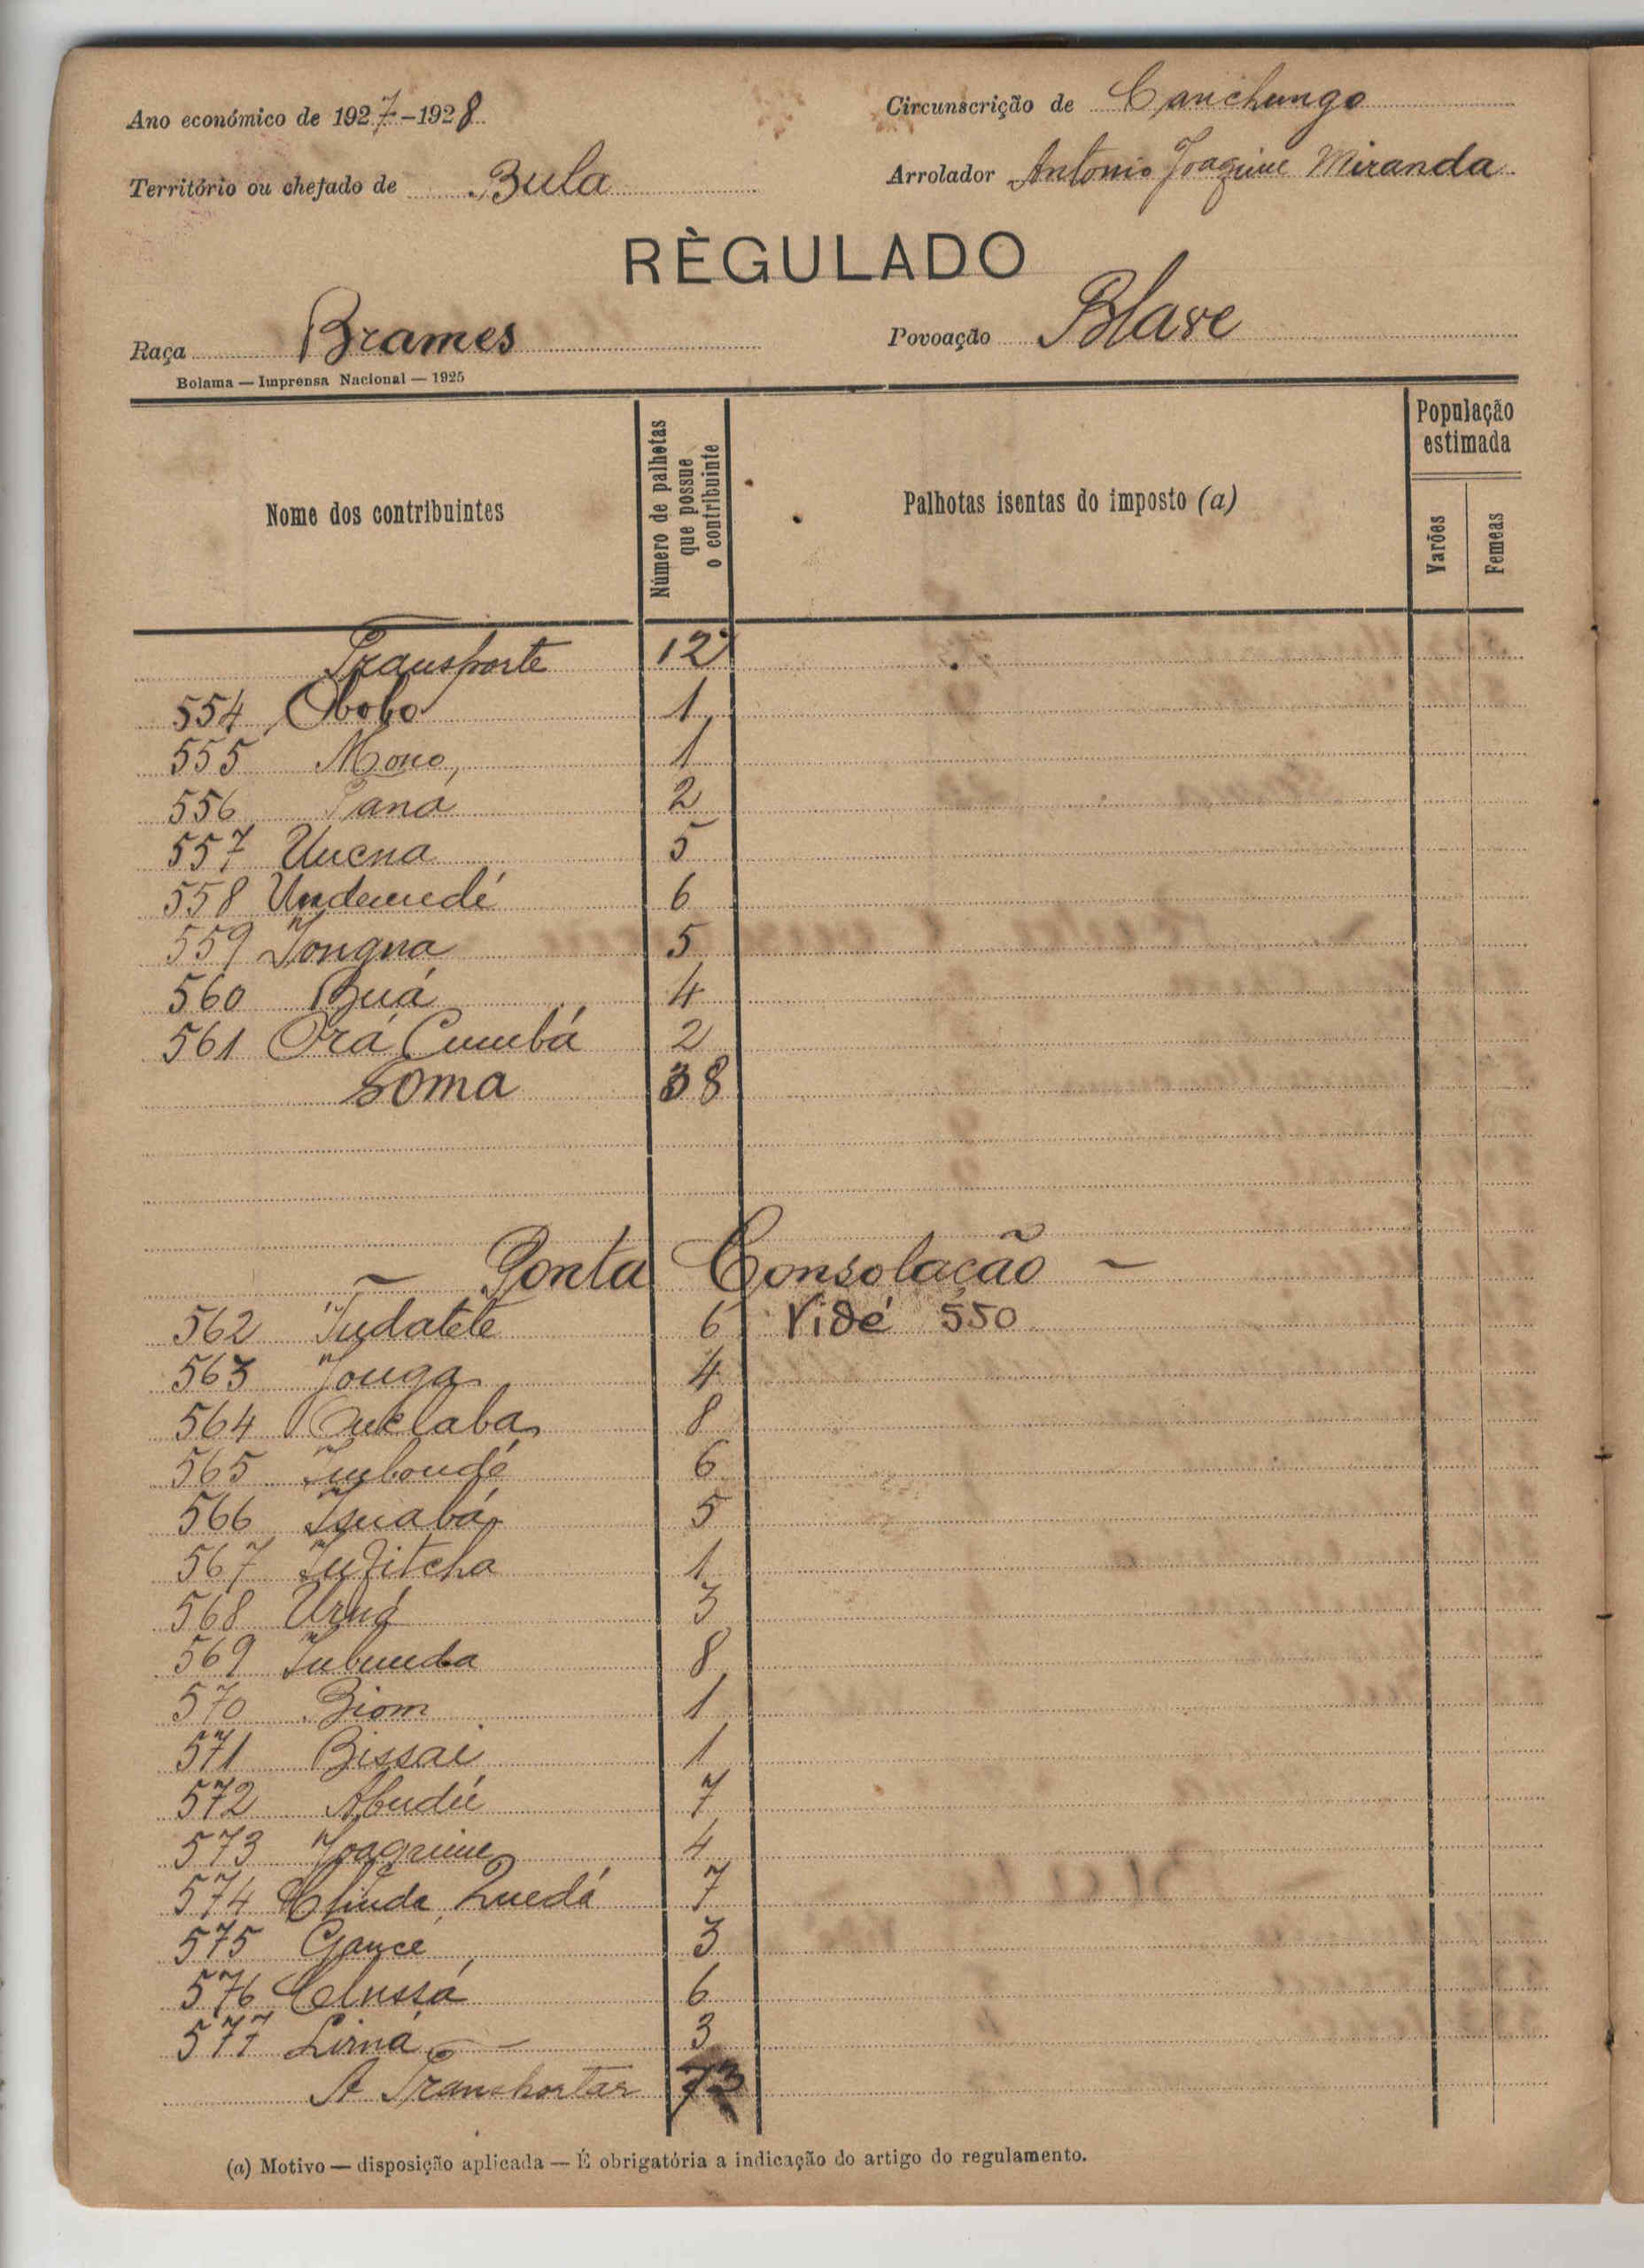 Ano económico de 1927-1928
Circunscrição de Canchungo
Território ou chefado de Bula
Arrolador Antonio Joaquim Miranda
RÈGULADO
Raça Brames
Povoação Blare
Bolama — Imprensa Nacional — 1925
Nome dos contribuintes
Número de palhotas que possue o contribuinte
Palhotas isentas do imposto (a)
População estimada
Varões
Femeas
Transporte 12
554 Obobo 1
555 Mono 1
556 Taná 2
557 Uucna 5
558 Undemedé 6
559 Jongna 5
560 Buá 4
561 Orá Cumbá 2
Soma 38
— Ponta Consolação —
562 Tudatete 6 Vidé 550
563 Jouga 4
564 Queclaba 8
565 Imboudé 6
566 Isuabá 5
567 Iufitcha 1
568 Urná 3
569 Iubunda 8
570 Biom 1
571 Bissai 1
572 Abudú 7
573 Joaquim 4
574 Quedá 7
575 Gance 3
576 Clussá 6
577 Lirná 3
A Transportar 73
(a) Motivo — disposição aplicada — É obrigatória a indicação do artigo do regulamento.